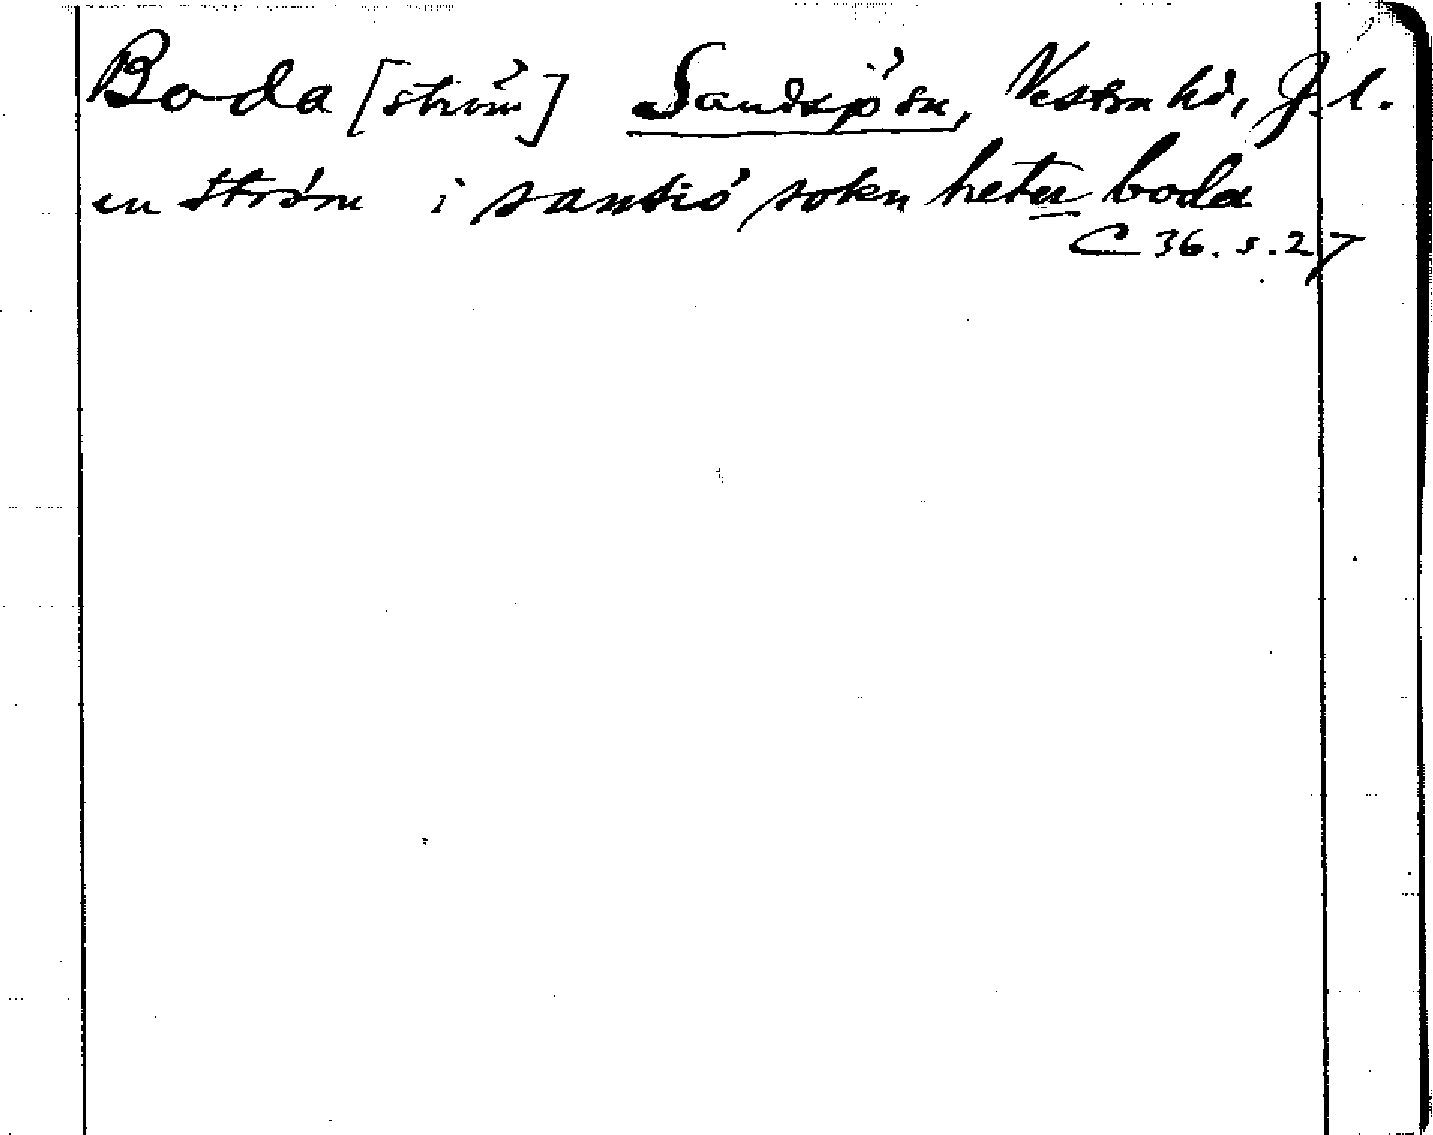 Boda [ström] Sandsjö sn, Västra hd, J. l.
en ström i sandsiö sokn heter boda
C 36. s. 27